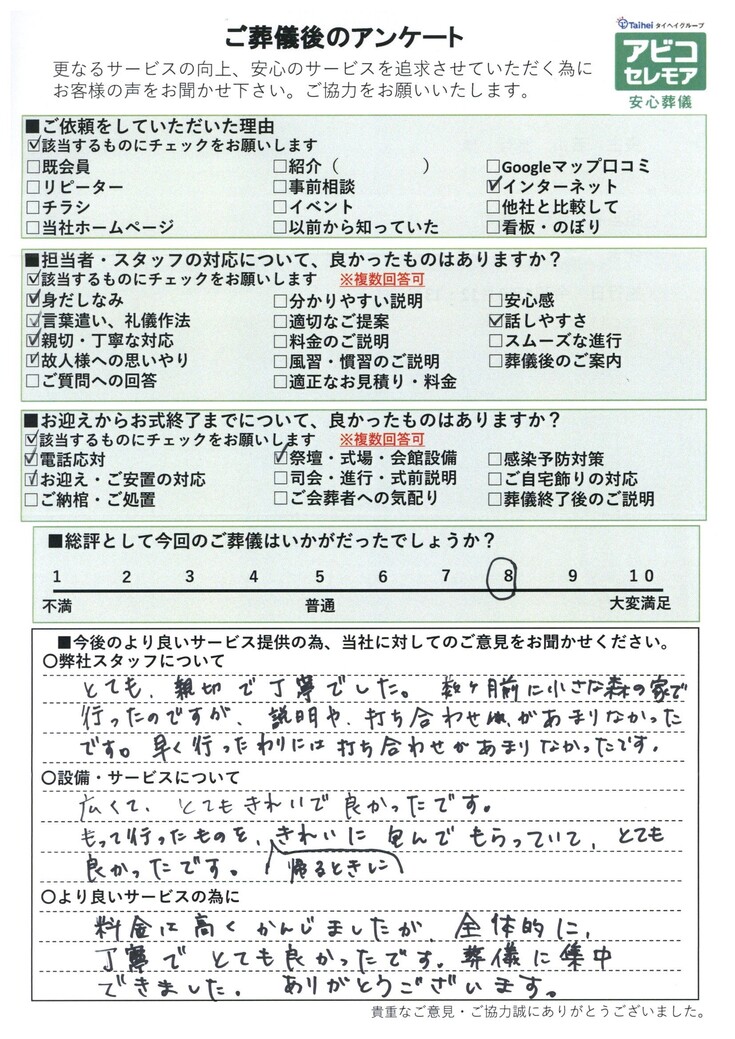 ご葬儀後のアンケート
Taihei タイヘイグループ
アビコ
セレモア
安心葬儀
更なるサービスの向上、安心のサービスを追求させていただく為に
お客様の声をお聞かせ下さい。ご協力をお願いいたします。
■ご依頼をしていただいた理由
☑該当するものにチェックをお願いします
□既会員 □紹介（ ） □Googleマップ口コミ
□リピーター □事前相談 ☑インターネット
□チラシ □イベント □他社と比較して
□当社ホームページ □以前から知っていた □看板・のぼり
■担当者・スタッフの対応について、良かったものはありますか？
☑該当するものにチェックをお願いします ※複数回答可
☑身だしなみ □分かりやすい説明 □安心感
☑言葉遣い、礼儀作法 □適切なご提案 ☑話しやすさ
☑親切・丁寧な対応 □料金のご説明 □スムーズな進行
☑故人様への思いやり □風習・慣習のご説明 □葬儀後のご案内
□ご質問への回答 □適正なお見積り・料金
■お迎えからお式終了までについて、良かったものはありますか？
☑該当するものにチェックをお願いします ※複数回答可
☑電話応対 ☑祭壇・式場・会館設備 □感染予防対策
☑お迎え・ご安置の対応 □司会・進行・式前説明 □ご自宅飾りの対応
□ご納棺・ご処置 □ご会葬者への気配り □葬儀終了後のご説明
■総評として今回のご葬儀はいかがだったでしょうか？
1 2 3 4 5 6 7 8 9 10
不満 普通 大変満足
■今後のより良いサービス提供の為、当社に対してのご意見をお聞かせください。
○弊社スタッフについて
とても、親切で丁寧でした。数ヶ月前に小さな森の家で
行ったのですが、説明や、打ち合わせ があまりなかった
です。早く行ったわりには打ち合わせがあまりなかったです。
○設備・サービスについて
広くて、とてもきれいで良かったです。
もって行ったものを、きれいに包んでもらっていて、とても
良かったです。 帰るときに
○より良いサービスの為に
料金は高くかんじましたが、全体的に、
丁寧でとても良かったです。葬儀に集中
できました。ありがとうございます。
貴重なご意見・ご協力誠にありがとうございました。